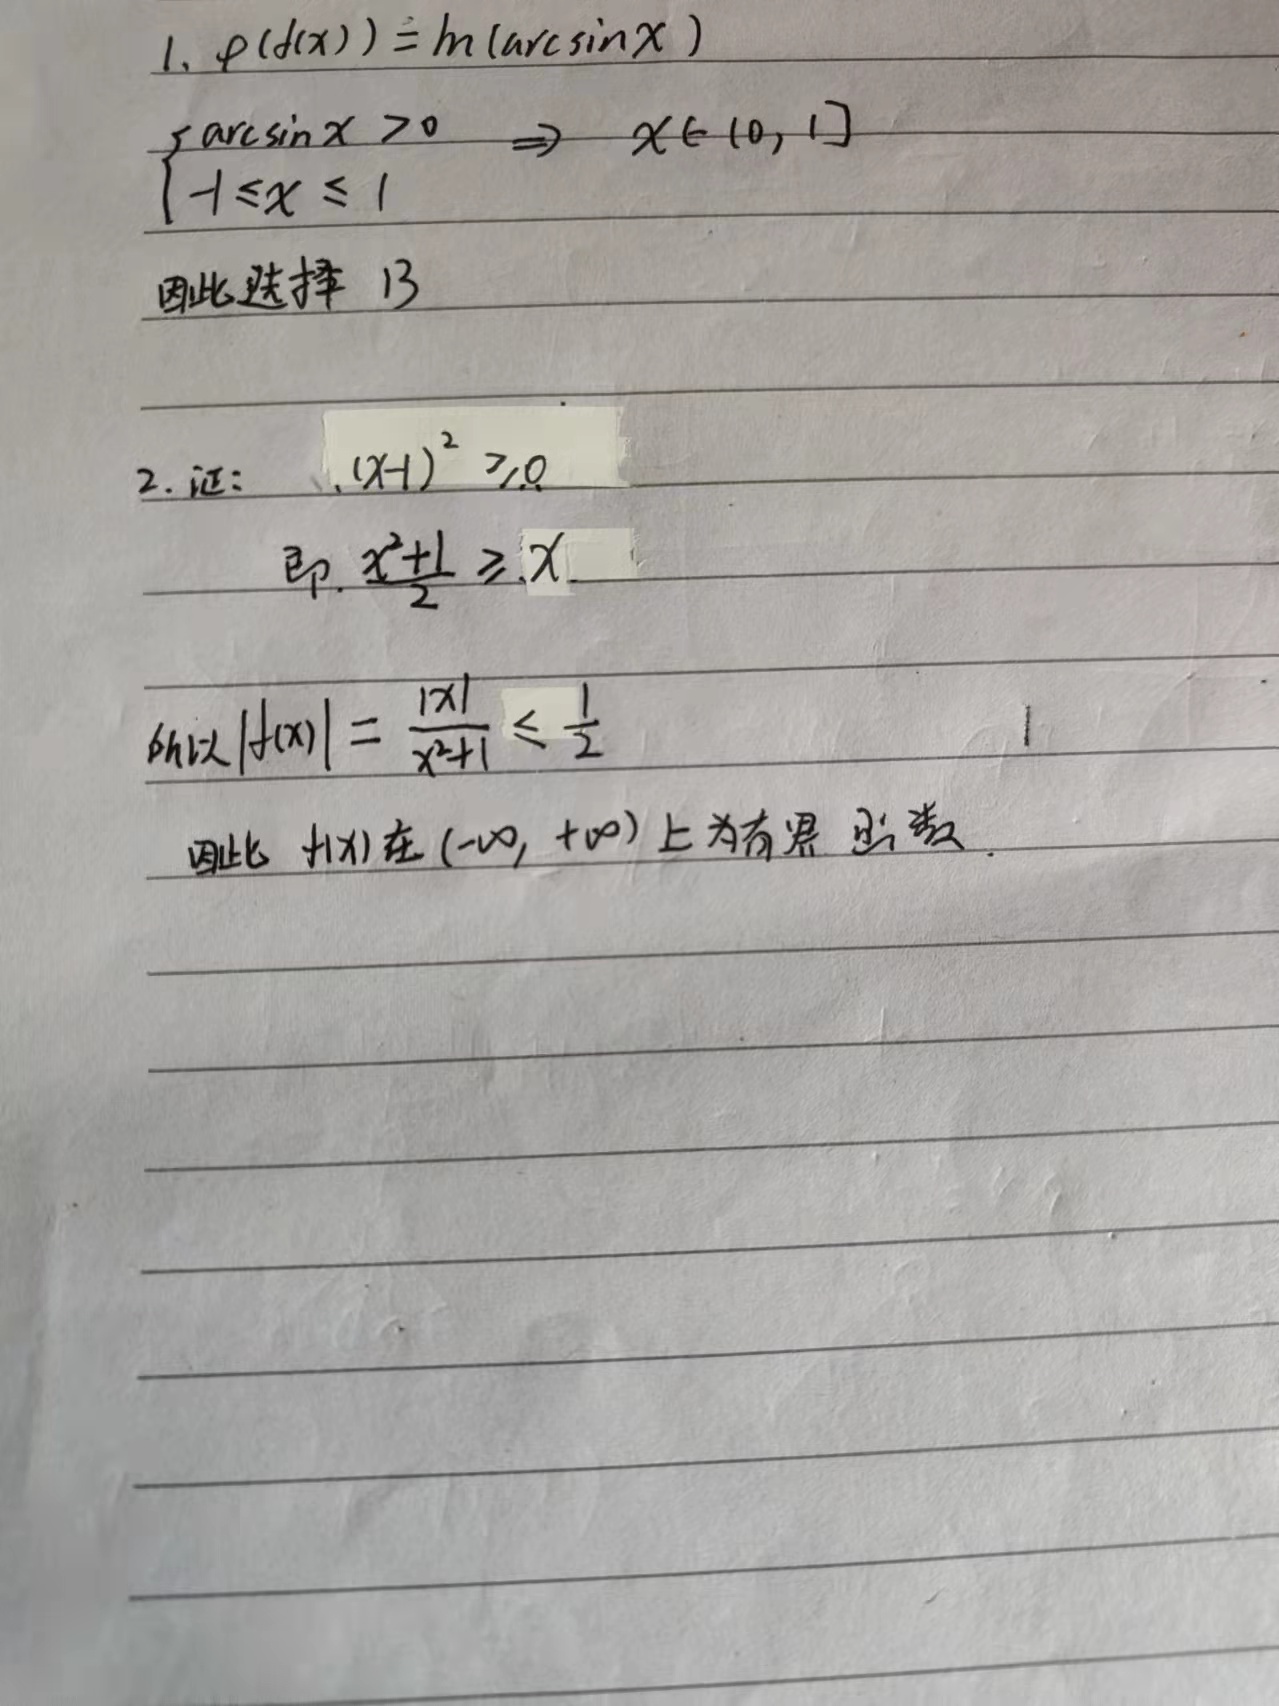 1. φ(f(x)) = ln(arcsinx)
{arcsinx > 0 ⇒ x∈(0, 1]
-1≤x≤1
因此选择 B
2. 证: (x-1)² ≥0
即. x²+1/2 ≥ x
所以|f(x)| = |x|/x²+1 ≤ 1/2
因此 f(x)在(-∞, +∞)上为有界函数.